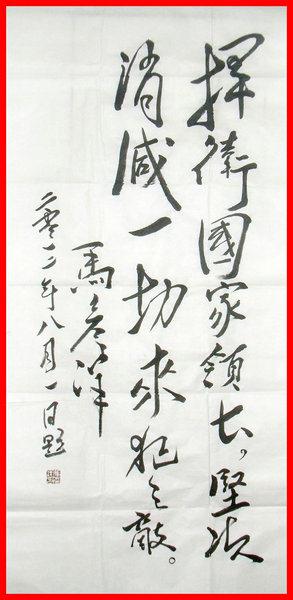 捍衛國家領土，堅决
消滅一切來犯之敵。
馬洋
二零一二年八月一日題